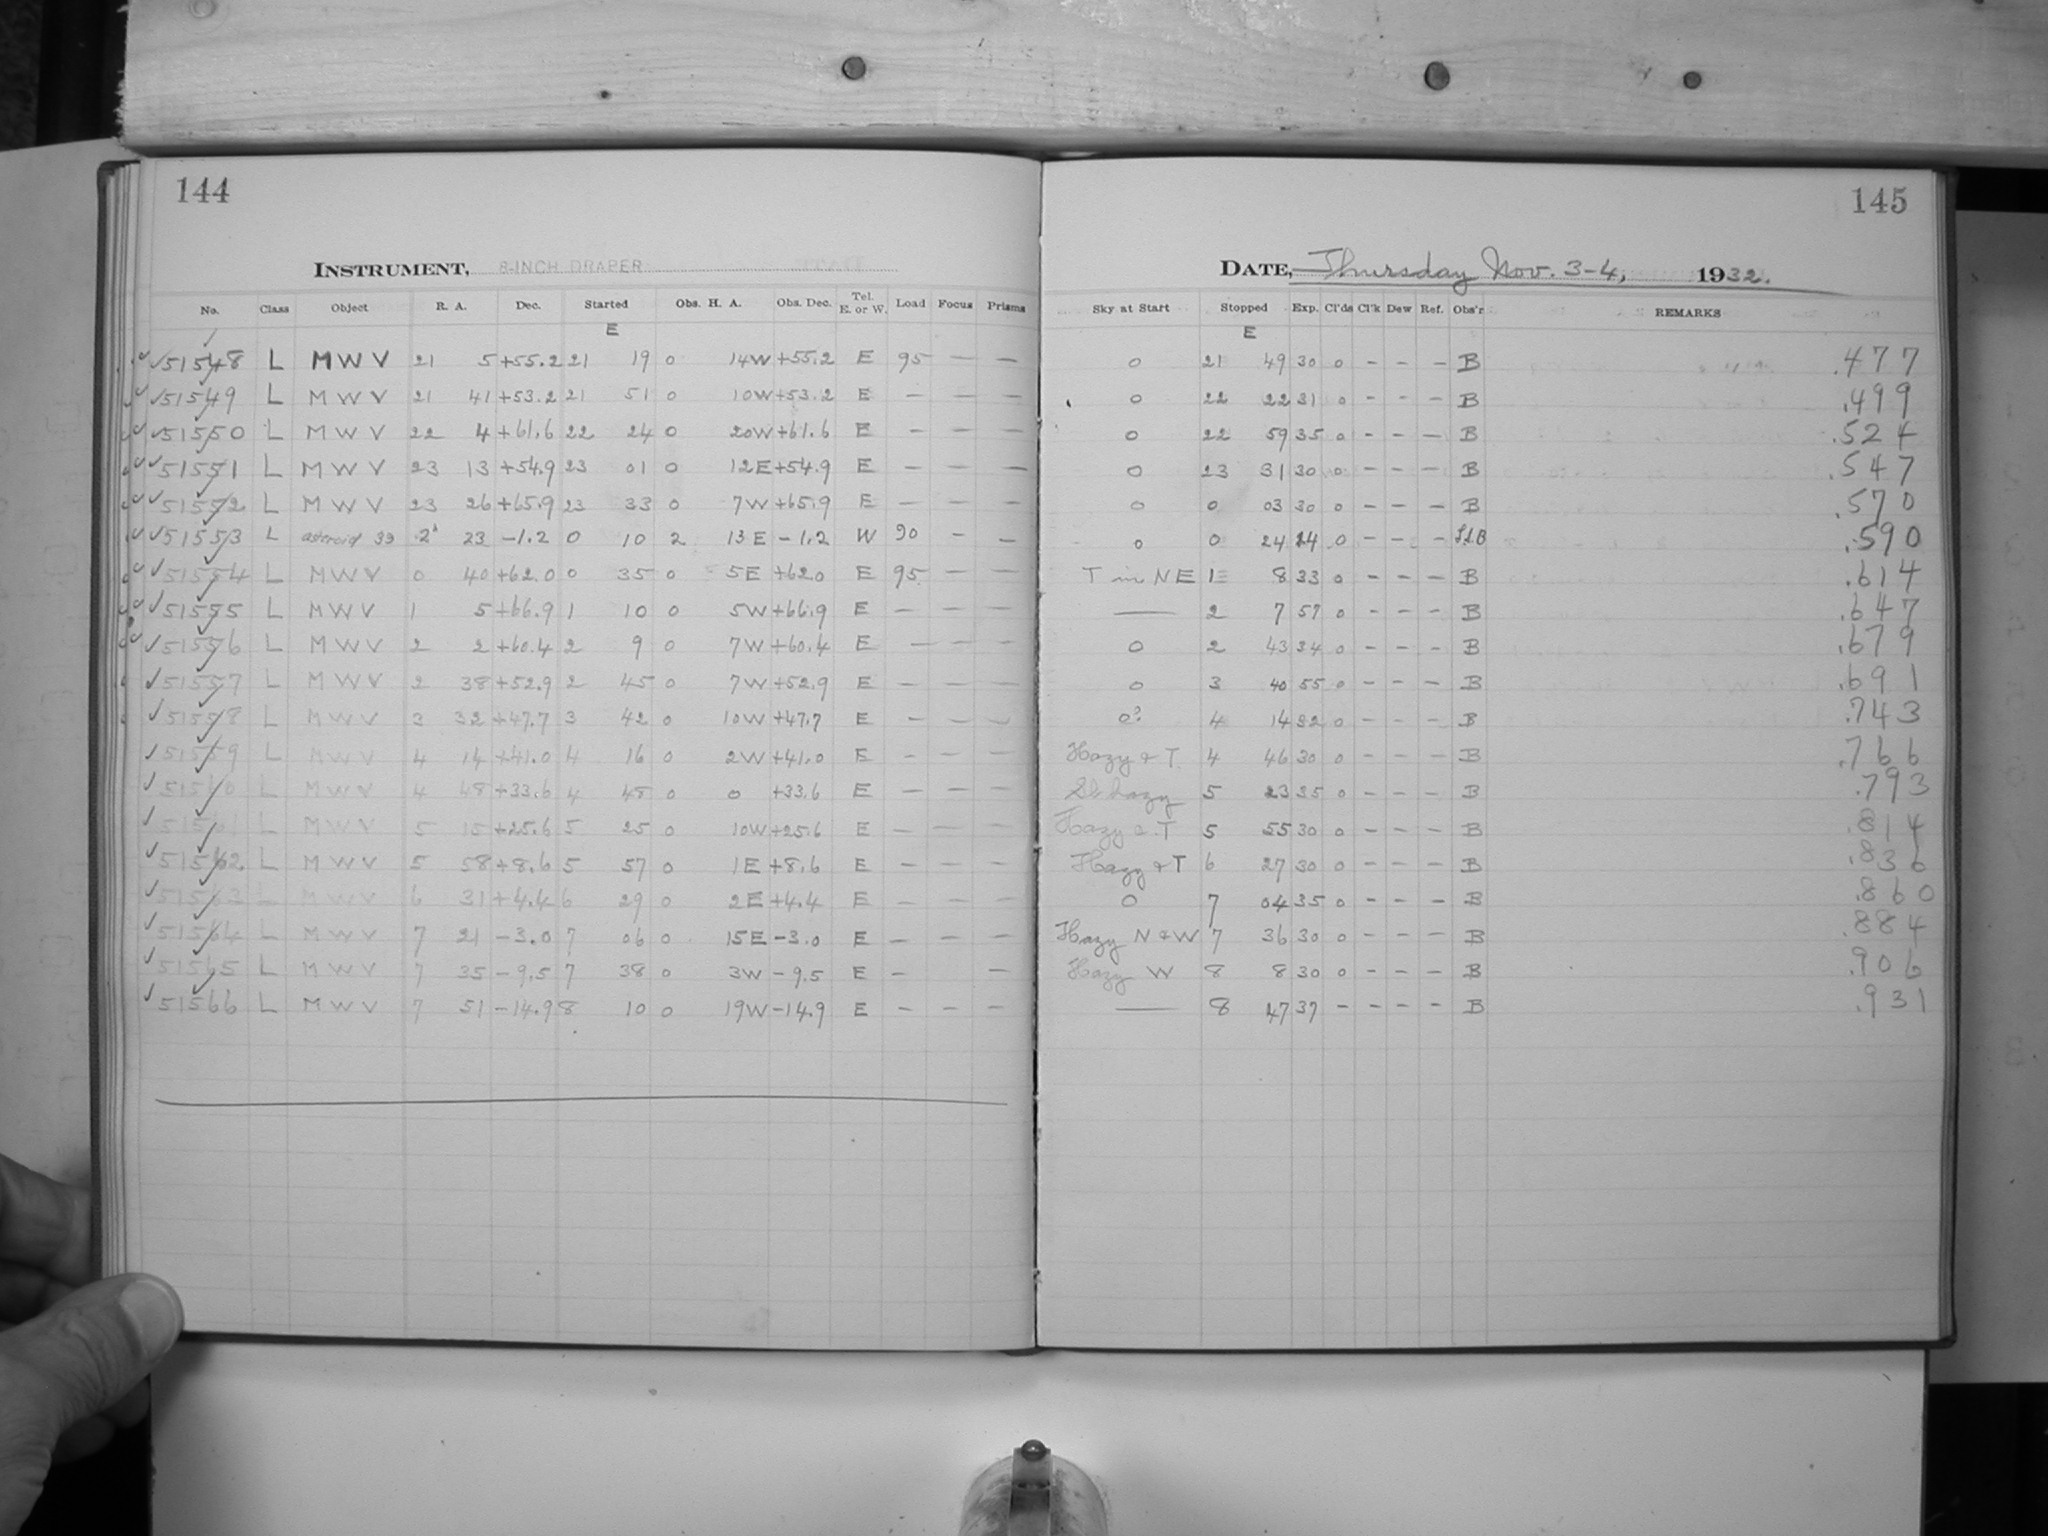 144
INSTRUMENT, 8-INCH DRAPER
No. Class Object R. A. Dec. Started Obs. H. A. Obs. Dec. Tel. E. or W. Load Focus Prisms
E
51548 L M W V 21 5 +55.2 21 19 0 14W +55.2 E 95 — —
51549 L M W V 21 41 +53.2 21 51 0 10W +53.2 E — — —
51550 L M W V 22 4 +61.6 22 24 0 20W +61.6 E — — —
51551 L M W V 23 13 +54.9 23 01 0 12E +54.9 E — — —
51552 L M W V 23 26 +65.9 23 33 0 7W +65.9 E — — —
51553 L asteroid 39 2 23 -1.2 0 10 2 13E -1.2 W 90 — —
51554 L M W V 0 40 +62.0 0 35 0 5E +62.0 E 95 — —
51555 L M W V 1 5 +66.9 1 10 0 5W +66.9 E — — —
51556 L M W V 2 2 +60.4 2 9 0 7W +60.4 E — — —
51557 L M W V 2 38 +52.9 2 45 0 7W +52.9 E — — —
51558 L M W V 3 32 +47.7 3 42 0 10W +47.7 E — — —
51559 L M W V 4 14 +41.0 4 16 0 2W +41.0 E — — —
51560 L M W V 4 48 +33.6 4 48 0 0 +33.6 E — — —
51561 L M W V 5 15 +25.6 5 25 0 10W +25.6 E — — —
51562 L M W V 5 58 +8.6 5 57 0 1E +8.6 E — — —
51563 L M W V 6 31 +4.4 6 29 0 2E +4.4 E — — —
51564 L M W V 7 21 -3.0 7 06 0 15E -3.0 E — — —
51565 L M W V 7 35 -9.5 7 38 0 3W -9.5 E — —
51566 L M W V 7 51 -14.9 8 10 0 19W -14.9 E — — —
145
DATE, Thursday Nov. 3-4, 1932.
Sky at Start Stopped Exp. Cl'ds Cl'k Dew Ref. Obs'r REMARKS
E
0 21 49 30 0 - - - B .477
0 22 22 31 0 - - - B .499
0 22 59 35 0 - - - B .524
0 23 31 30 0 - - - B .547
0 0 03 30 0 - - - B .570
0 0 24 14 0 - - - .590
T in NE 1 8 33 0 - - - B .614
— 2 7 57 0 - - - B .647
0 2 43 34 0 - - - B .679
0 3 40 55 0 - - - B .691
0? 4 14 32 0 - - - B .743
Hazy & T 4 46 30 0 - - - B .766
Sl. hazy 5 23 35 0 - - - B .793
Hazy & T 5 55 30 0 - - - B .814
Hazy & T 6 27 30 0 - - - B .836
0 7 04 35 0 - - - B .860
Hazy N & W 7 36 30 0 - - - B .884
Hazy W 8 8 30 0 - - - B .906
— 8 47 37 - - - - B .931